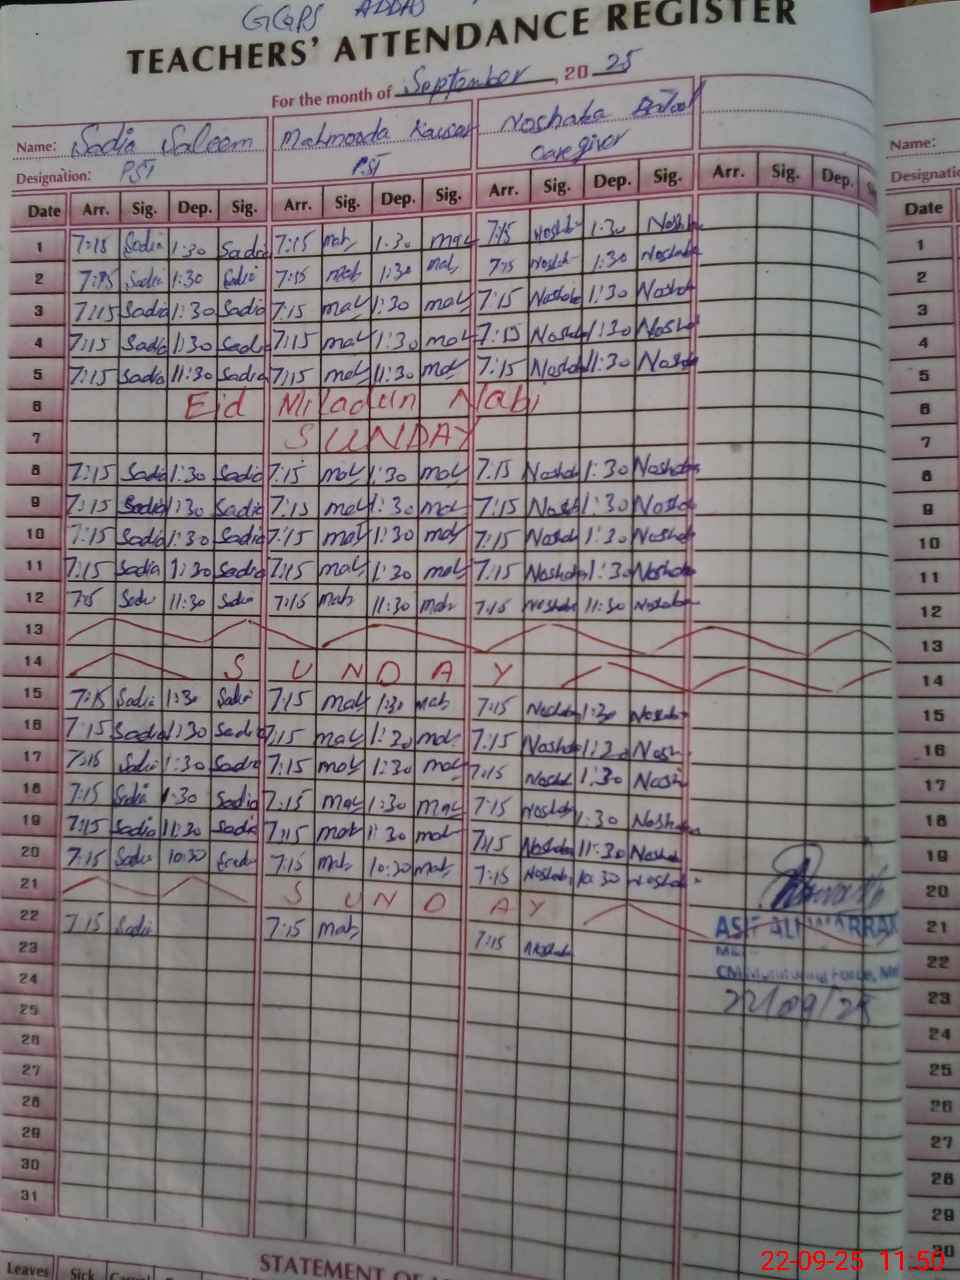 GGPS ADDA
TEACHERS' ATTENDANCE REGISTER
For the month of September, 2025
Name: Sadia Saleem Mahmooda Kausar Noshaba Batool
Designation: PST PST Caregiver
Date Arr. Sig. Dep. Sig. Arr. Sig. Dep. Sig. Arr. Sig. Dep. Sig. Arr. Sig. Dep.
1 7:15 Sadia 1:30 Sadia 7:15 mah 1:30 mah 7:15 Noshab 1:30 Noshab
2 7:15 Sadia 1:30 Sadia 7:15 mah 1:30 mah 7:15 Noshab 1:30 Noshaba
3 7:15 Sadia 1:30 Sadia 7:15 mah 1:30 mah 7:15 Noshaba 1:30 Noshab
4 7:15 Sadia 1:30 Sadia 7:15 mah 1:30 mah 7:15 Noshab 1:30 Noshab
5 7:15 Sadia 11:30 Sadia 7:15 mah 11:30 mah 7:15 Noshab 11:30 Noshab
6 Eid Miladun Nabi
7 SUNDAY
8 7:15 Sadia 1:30 Sadia 7:15 mah 1:30 mah 7:15 Noshab 1:30 Noshaba
9 7:15 Sadia 1:30 Sadia 7:15 mah 1:30 mah 7:15 Nosh 1:30 Noshab
10 7:15 Sadia 1:30 Sadia 7:15 mah 1:30 mah 7:15 Noshab 1:30 Noshab
11 7:15 Sadia 1:30 Sadia 7:15 mah 1:30 mah 7:15 Noshab 1:30 Noshab
12 7:15 Sadia 11:30 Sadia 7:15 mah 11:30 mah 7:15 Noshab 11:30 Noshaba
13
14 SUNDAY
15 7:15 Sadia 1:30 Sadia 7:15 mah 1:30 mah 7:15 Noshab 1:30 Noshab
16 7:15 Sadia 1:30 Sadia 7:15 mah 1:30 mah 7:15 Noshab 1:30 Nosh
17 7:15 Sadia 1:30 Sadia 7:15 mah 1:30 mah 7:15 Noshab 1:30 Nosh
18 7:15 Sadia 1:30 Sadia 7:15 mah 1:30 mah 7:15 Noshab 1:30 Noshab
19 7:15 Sadia 11:30 Sadia 7:15 mah 11:30 mah 7:15 Noshab 11:30 Noshab
20 7:15 Sadia 10:30 Sadia 7:15 mah 10:30 mah 7:15 Noshab 10:30 Noshab
21 SUNDAY
22 7:15 Sadia 7:15 mah 7:15 Noshab
ASIF ALI WARRAI
22/09/25
23
24
25
26
27
28
29
30
31
STATEMENT OF
Leaves Sick Casual
Name:
Designatio
Date
1
2
3
4
5
6
7
8
9
10
11
12
13
14
15
16
17
18
19
20
21
22
23
24
25
26
27
28
29
30
22-09-25 11:50